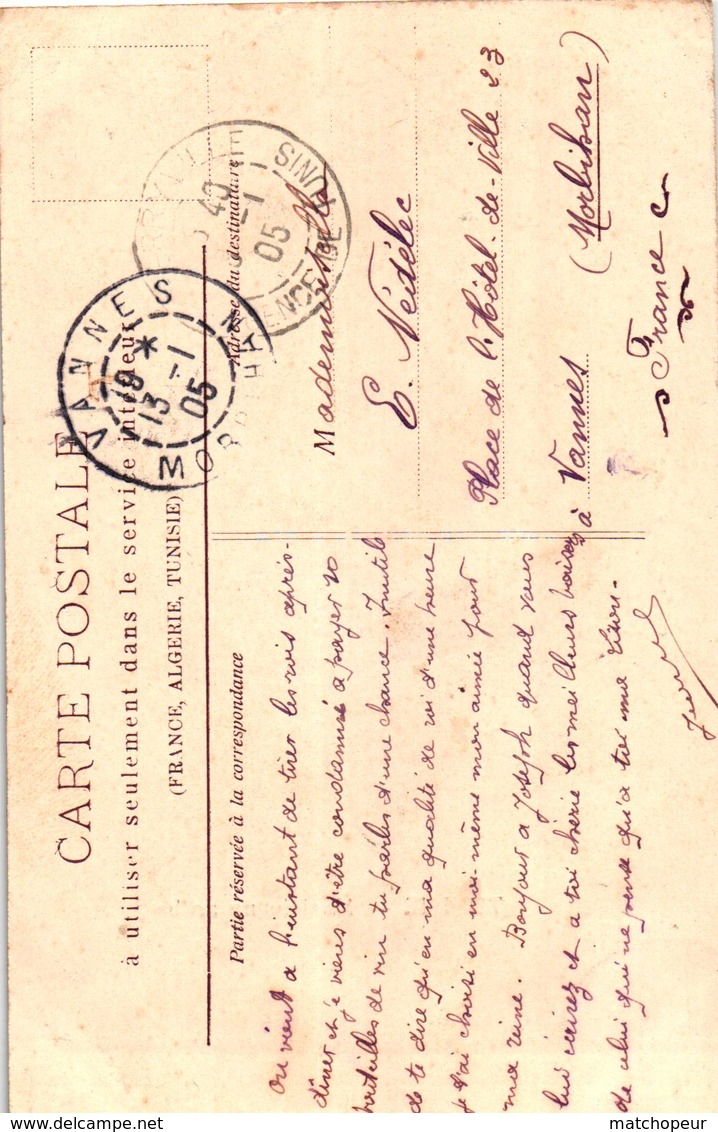 CARTE POSTALE
à utiliser seulement dans le service intérieur
(FRANCE, ALGERIE, TUNISIE)
Partie réservée à la correspondance
Adresse du destinataire
On vient à l'instant de tirer les rois après-
dîner et je viens d'être condamné à payer 10
bouteilles de vin tu parles d'une chance. Inutile
de te dire qu'en ma qualité de roi d'une heure
je t'ai choisi en moi-même mon aimée pour
ma reine. Bonjour à Joseph quand vous
lui écrirez et à toi chérie les meilleurs baisers
de celui qui ne pense qu'à toi ma
Mademoiselle
E. Nédélec
Place de l'Hôtel-de-Ville 23
à Vannes
(Morbihan)
France
VANNES
18 *
13 -1
05
MORBIHAN
RÉGENCE DE TUNIS
40
-1
05
matchopeur